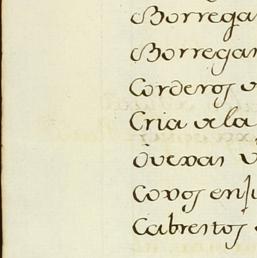 Borrega
Borregan
Corderos v
Cria vela
Ovexas v
Coxos en
Cabrestos